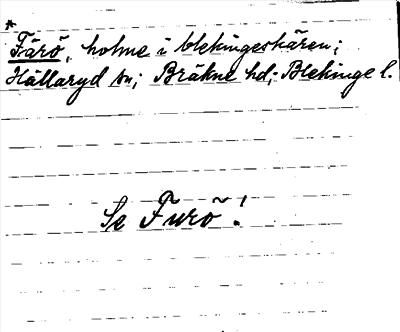 *
Färö, holme i blekingeskären;
Hällaryd sn; Bräkne hd; Blekinge l.
Se Furö!